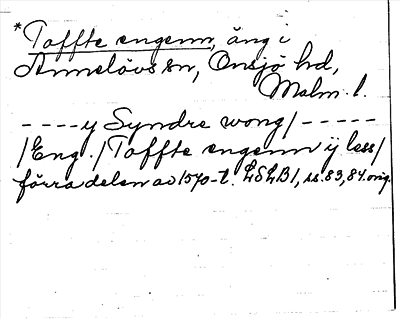 *Toffte engenn, äng i
Annelövs sn, Onsjö hd,
Malm. l.
----y Syndre wong/-----
/Eng./Toffte engenn ij less/
förra delen av 1570-t. LSLB1, ss.83,84.orig.